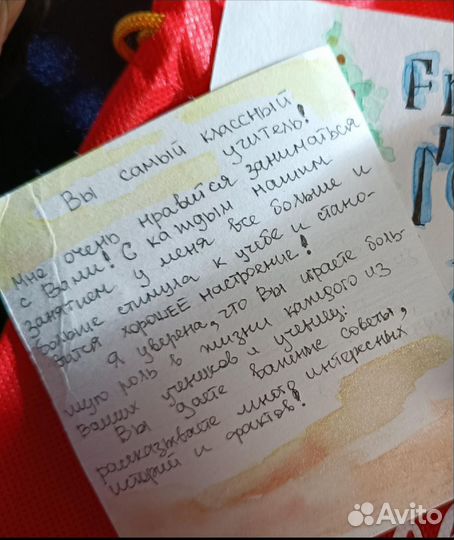 Вы самый классный
учитель!
Мне очень нравится заниматься
с Вами! С каждым нашим
занятием у меня все больше и
больше стимула к учебе и стано-
вится хорошее настроение!
Я уверена, что Вы играете боль-
шую роль в жизни каждого из
Ваших учеников и учениц.
Вы даете важные советы,
рассказываете много интересных
историй и фактов!
Avito